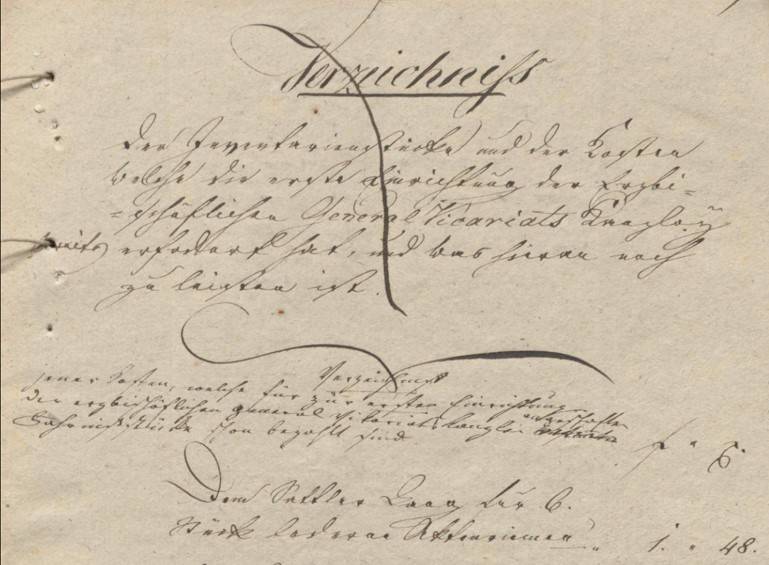 Verzeichniss
Der Inventarienstücke und der Kosten
welche die erste Einrichtung der Erzbi-
-schöflichen General Vicariats Kanzley
bereits erfodert hat, und was hieran noch
zu leisten ist.
Verzeichniß
jener Kosten, welche für zur ersten Einrichtung
der erzbischöflichen General Vikariats Kanzlei angeschafften
Fahrnißstücke schon bezahlt sind
f " x.
Dem Sattler Lang für 6.
Stück lederne Aktenriemen " 1. " 48.